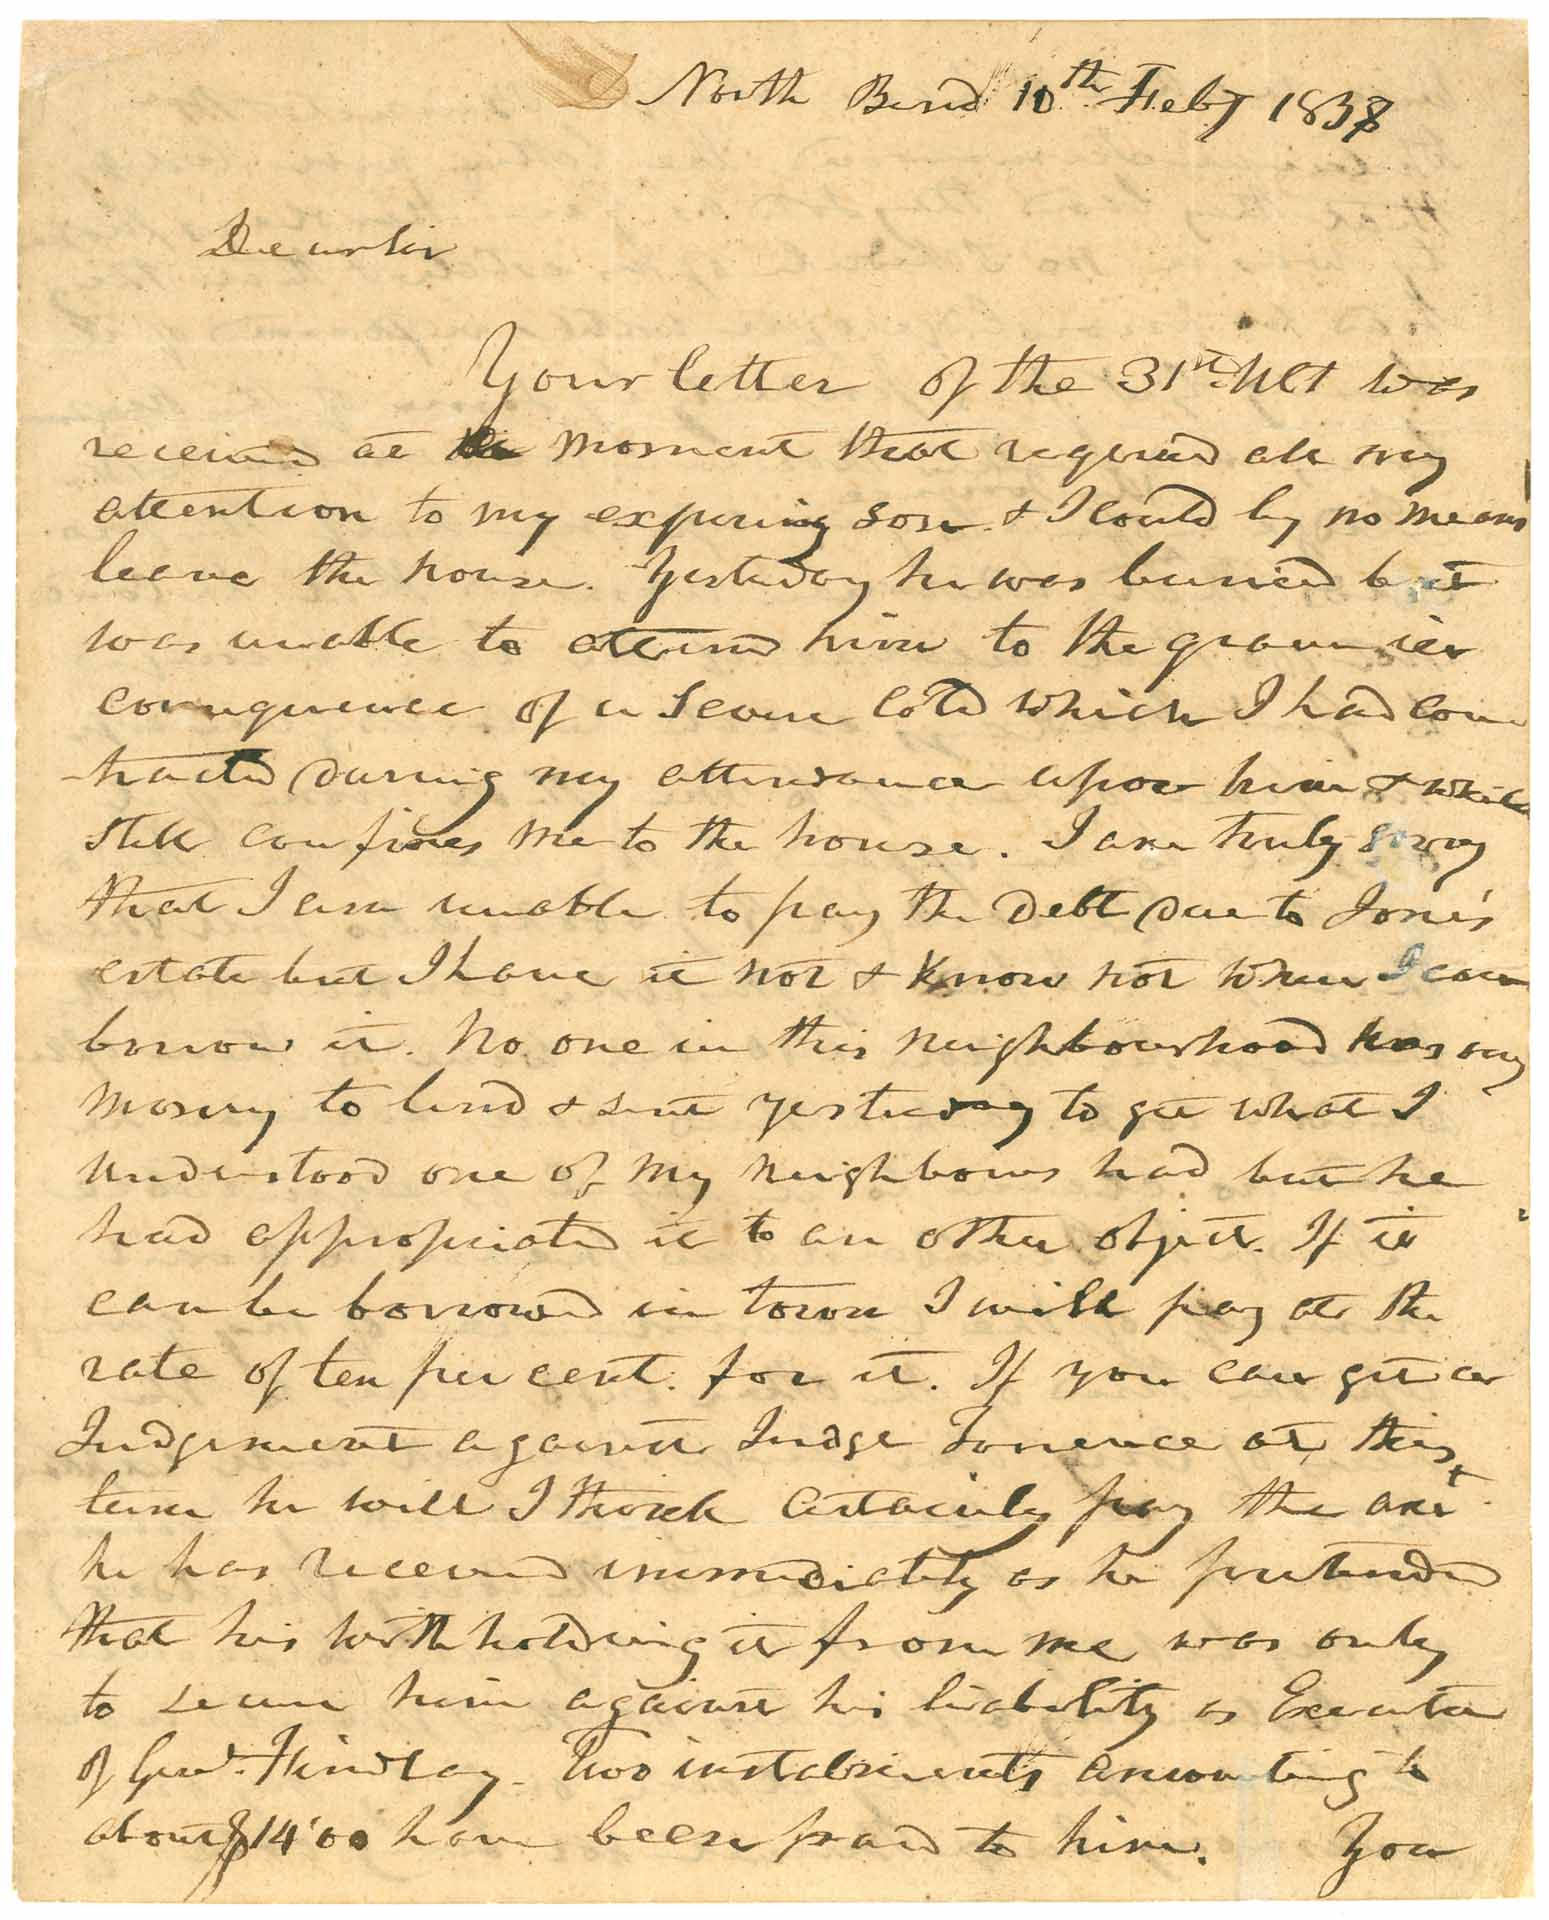 North Bend 10th Feby 1838
Dear sir
Your letter of the 31st Ult was
received at the moment that required all my
attention to my expiring son & I could by no means
leave the house. Yesterday he was buried but
was unable to attend him to the grave in
consequence of a severe cold which I had con
-tracted during my attendance upon him & which
still confines me to the house. I am truly sorry
that I am unable to pay the debt due to Jone's
estate but I have it not & know not where I can
borrow it. No one in this neighbourhood has any
money to lend & sent yesterday to get what I
understood one of my neighbours had but he
had appropriated it to an other object. If it
can be borrowed in town I will pay at the
rate of ten per cent. for it. If you can get a
Judgement against Judge Torrence at this
term he will I think certainly pay the amt.
he has received immediately as he pretended
that his withholding it from me was only
to secure him against his liability as Executor
of Genl. Findlay. Two instalments amounting to
about $1400 have been paid to him. You